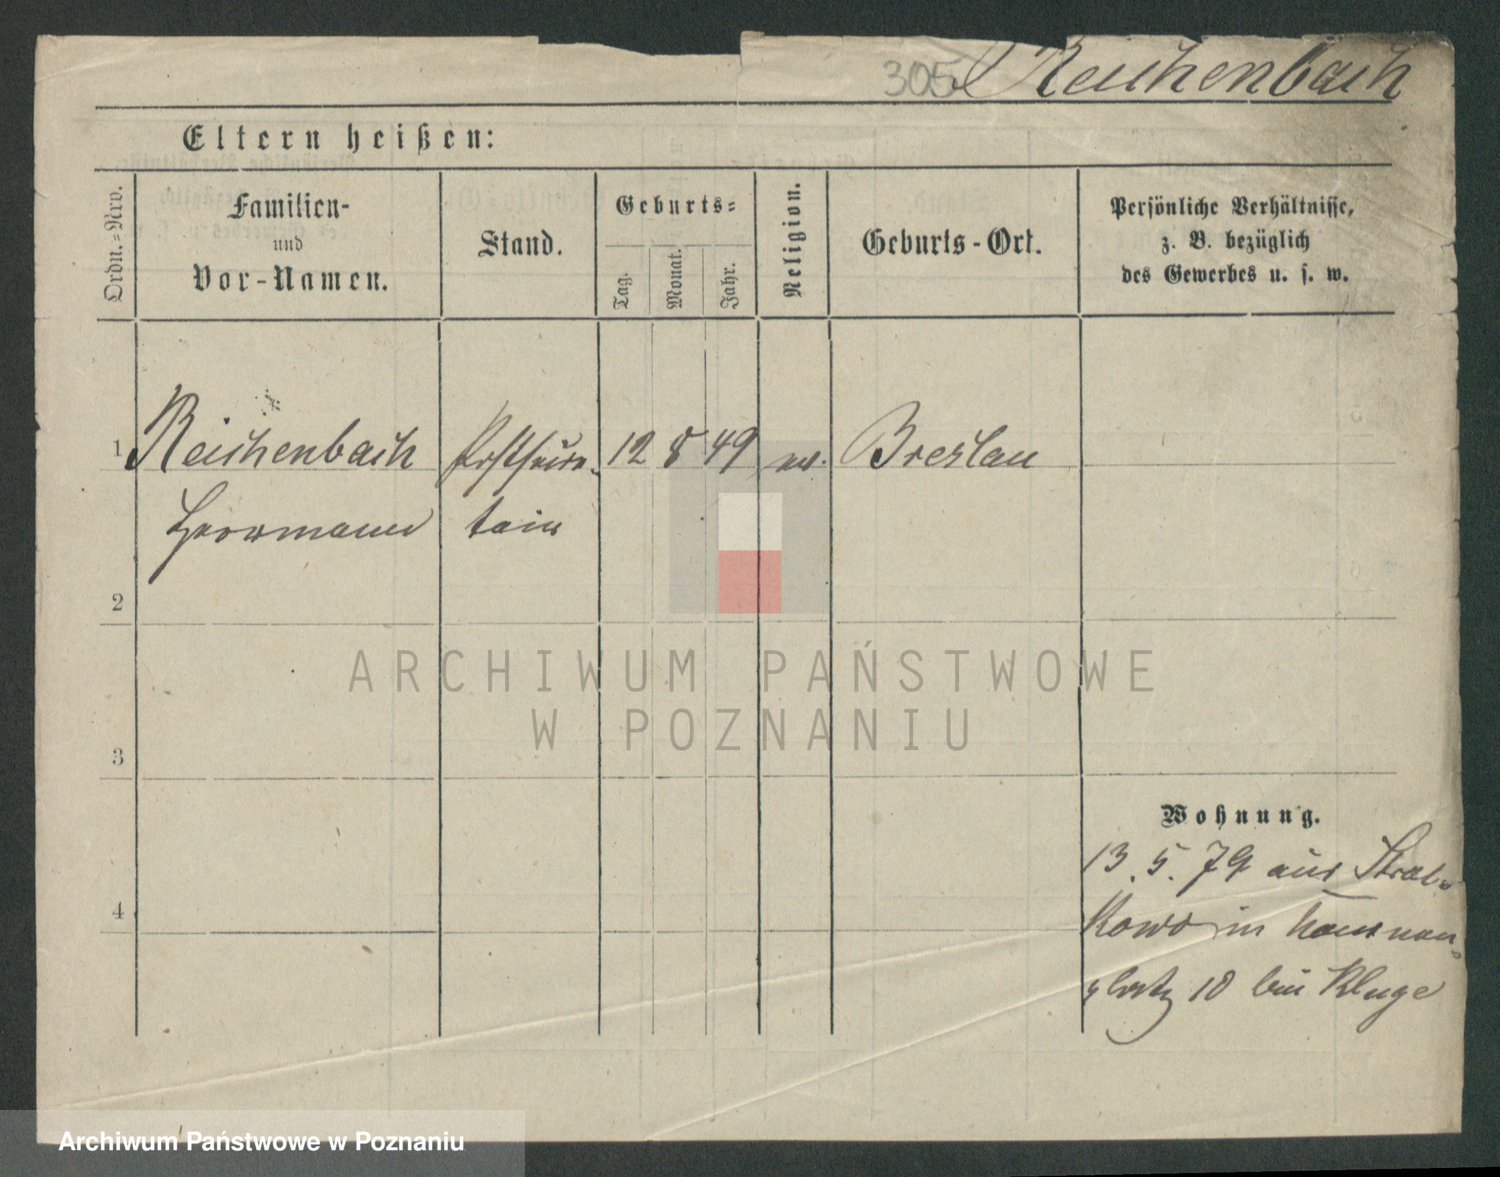 305 Reichenbach
Eltern heißen:
Ordn.=Nro.
Familien-
und
Vor-Namen.
Stand.
Geburts=
Tag.
Monat.
Jahr.
Religion.
Geburts-Ort.
Persönliche Verhältnisse,
z. B. bezüglich
des Gewerbes u. s. w.
1 Reichenbach 12 8 49 ev. Breslau
Herrmann
2
3
4
ARCHIWUM PAŃSTWOWE
W POZNANIU
Wohnung.
13. 5. 79 aus Stral-
kowo in
platz 10 bei Kluge
Archiwum Państwowe w Poznaniu